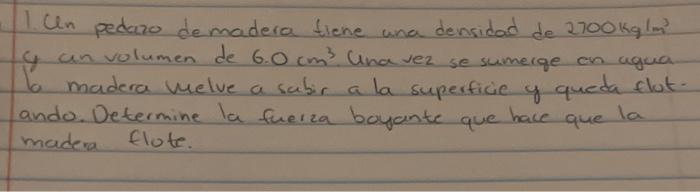 1. Un pedazo de madera tiene una densidad de 2700Kg/m³
y un volumen de 6.0 cm³. Una vez se sumerge en agua
la madera vuelve a subir a la superficie y queda flot-
ando. Determine la fuerza boyante que hace que la
madera flote.